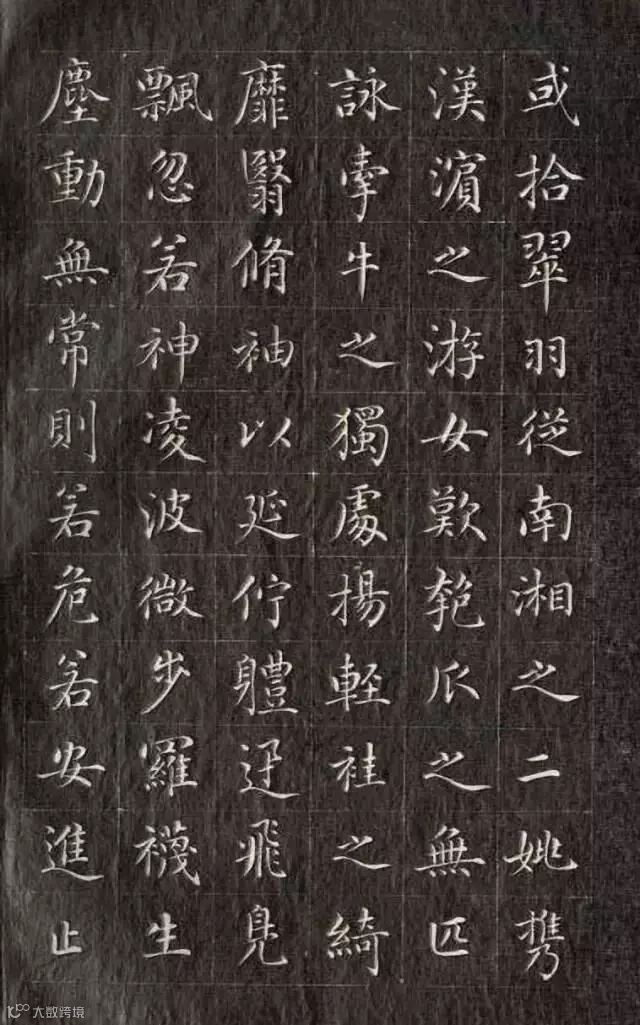 或拾翠羽從南湘之二姚攜
漢濱之游女歎匏瓜之無匹
詠牽牛之獨處揚輕袿之綺
靡翳脩袖以延佇體迅飛鳧
飄忽若神凌波微步羅襪生
塵動無常則若危若安進止
大数跨境